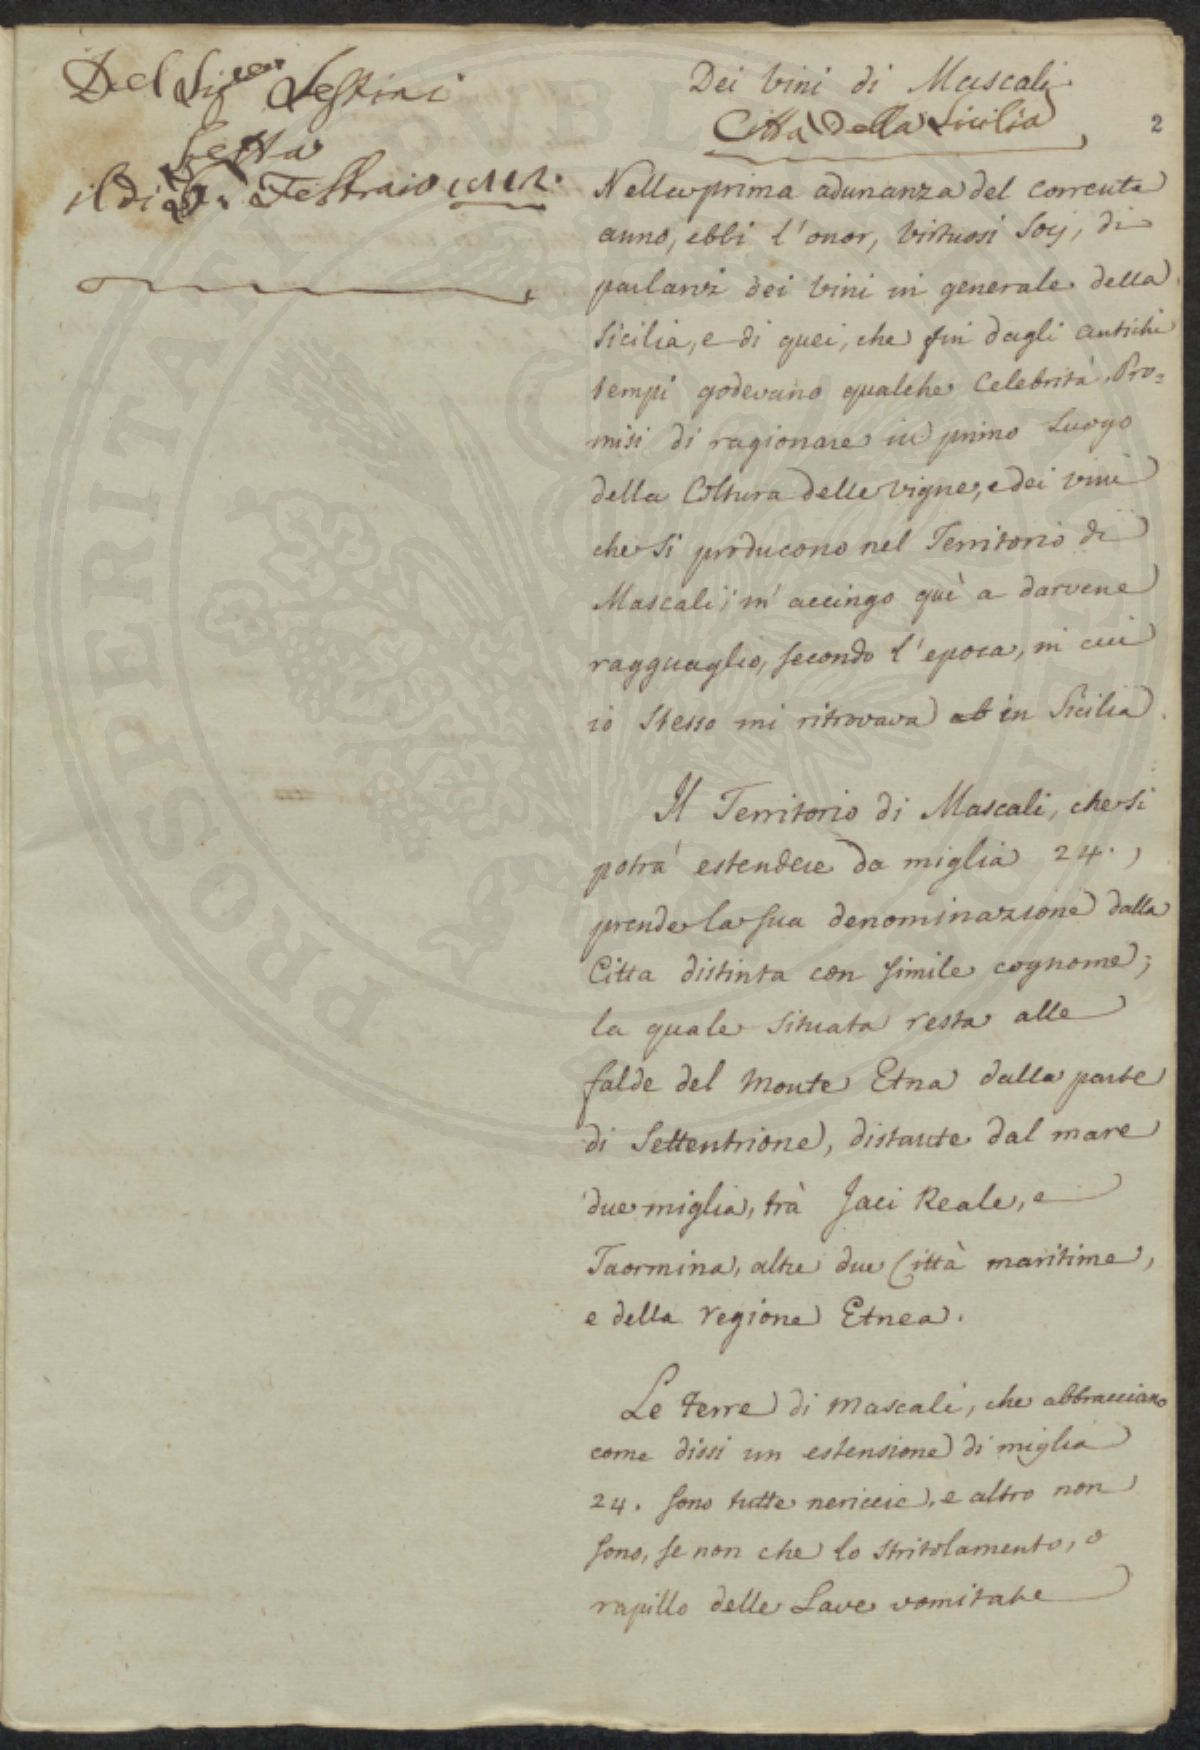 Del Sig.r Sestini
Letta
il di 5. Febbraio 1812.
Dei Vini di Mascali
Città Della Sicilia
2
Nella prima adunanza del corrente
anno, ebbi l'onor, virtuosi Socj, di
parlarvi dei Vini in generale della
Sicilia, e di quei, che fin dagli antichi
tempi godevano qualche Celebrità. Pro=
misi di ragionare in primo Luogo
della Coltura delle vigne, e dei vini
che si producono nel Territorio di
Mascali; m'accingo quì a darvene
ragguaglio, secondo l'epoca, in cui
io stesso mi ritrovava in Sicilia.
Il Territorio di Mascali, che si
potrà estendere da miglia 24.,
prende la sua denominazione dalla
Citta distinta con simile cognome;
la quale situata resta alle
falde del Monte Etna dalla parte
di Settentrione, distante dal mare
due miglia, trà Jaci Reale, e
Taormina, altre due Città maritime,
e della regione Etnea.
Le terre di Mascali, che abbracciano
come dissi un estensione di miglia
24. sono tutte nericcie, e altro non
sono, se non che lo stritolamento, o
rapillo delle Lave vomitate
PROSPERITATI PUBLICAE AUGENDAE